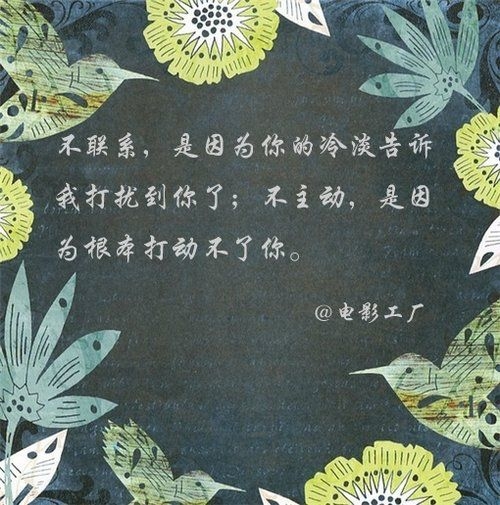 不联系，是因为你的冷淡告诉
我打扰到你了；不主动，是因
为根本打动不了你。
@电影工厂